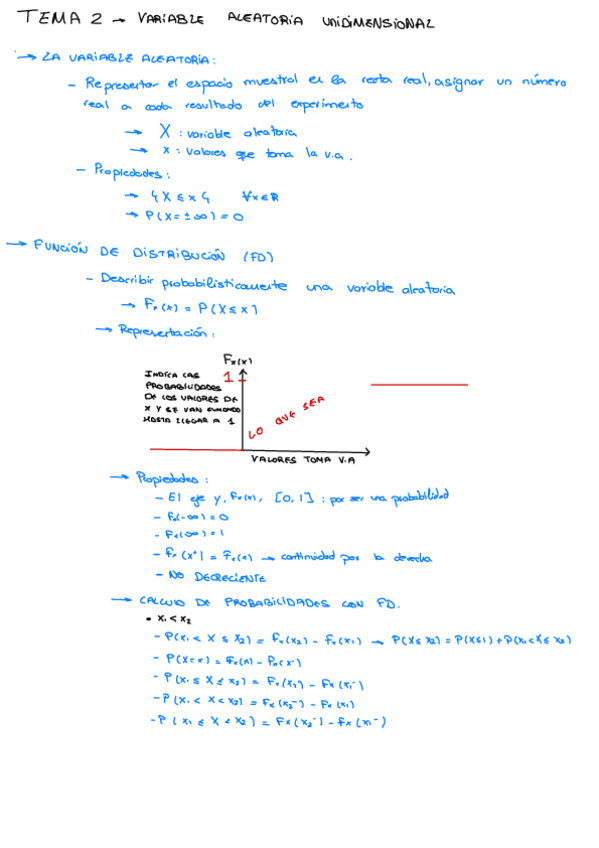 TEMA 2 → VARIABLE ALEATORIA UNIDIMENSIONAL
→ LA VARIABLE ALEATORIA:
- Representar el espacio muestral en la recta real, asignar un número
real a cada resultado del experimento
→ X : variable aleatoria
→ x : valores que toma la v.a.
- Propiedades:
→ { X ≤ x } ∀x ∈ ℝ
→ P(X = ±∞) = 0
→ FUNCIÓN DE DISTRIBUCIÓN (FD)
- Describir probabilísticamente una variable aleatoria
→ Fx(x) = P(X ≤ x)
→ Representación:
Fx(x)
INDICA LAS
PROBABILIDADES
DE LOS VALORES DE
X Y SE VAN SUMANDO
HASTA LLEGAR A 1
1
LO QUE SEA
VALORES TOMA V.A
→ Propiedades:
- El eje y, Fx(x), [0,1] : por ser una probabilidad
- Fx(-∞) = 0
- Fx(∞) = 1
- Fx(x⁺) = Fx(x) → continuidad por la derecha
- NO DECRECIENTE
→ CALCULO DE PROBABILIDADES CON FD.
• x₁ < x₂
- P(x₁ < X ≤ x₂) = Fx(x₂) - Fx(x₁) → P(X ≤ x₂) = P(X ≤ x1) + P(x₁ < X ≤ x₂)
- P(X = x) = Fx(x) - Fx(x⁻)
- P(x₁ ≤ X ≤ x₂) = Fx(x₂) - Fx(x₁⁻)
- P(x₁ < X < x₂) = Fx(x₂⁻) - Fx(x₁)
- P(x₁ ≤ X < x₂) = Fx(x₂⁻) - Fx(x₁⁻)